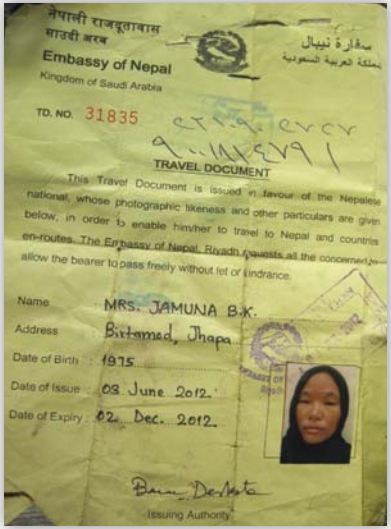 नेपाली राजदूतावास
साउदी अरब
Embassy of Nepal
Kingdom of Saudi Arabia
سفارة نيبال
المملكة العربية السعودية
TD. NO. 31835
TRAVEL DOCUMENT
This Travel Document is issued in favour of the Nepalese
national, whose photographic likeness and other particulars are given
below, in order to enable him/her to travel to Nepal and countries
en-routes. The Embassy of Nepal, Riyadh requests all the concerned to
allow the bearer to pass freely without let or hindrance.
Name : MRS. JAMUNA B.K.
Address Birtamod, Jhapa
Date of Birth : 1975
Date of Issue : 03 June 2012
Date of Expiry : 02. Dec. 2012.
Issuing Authority